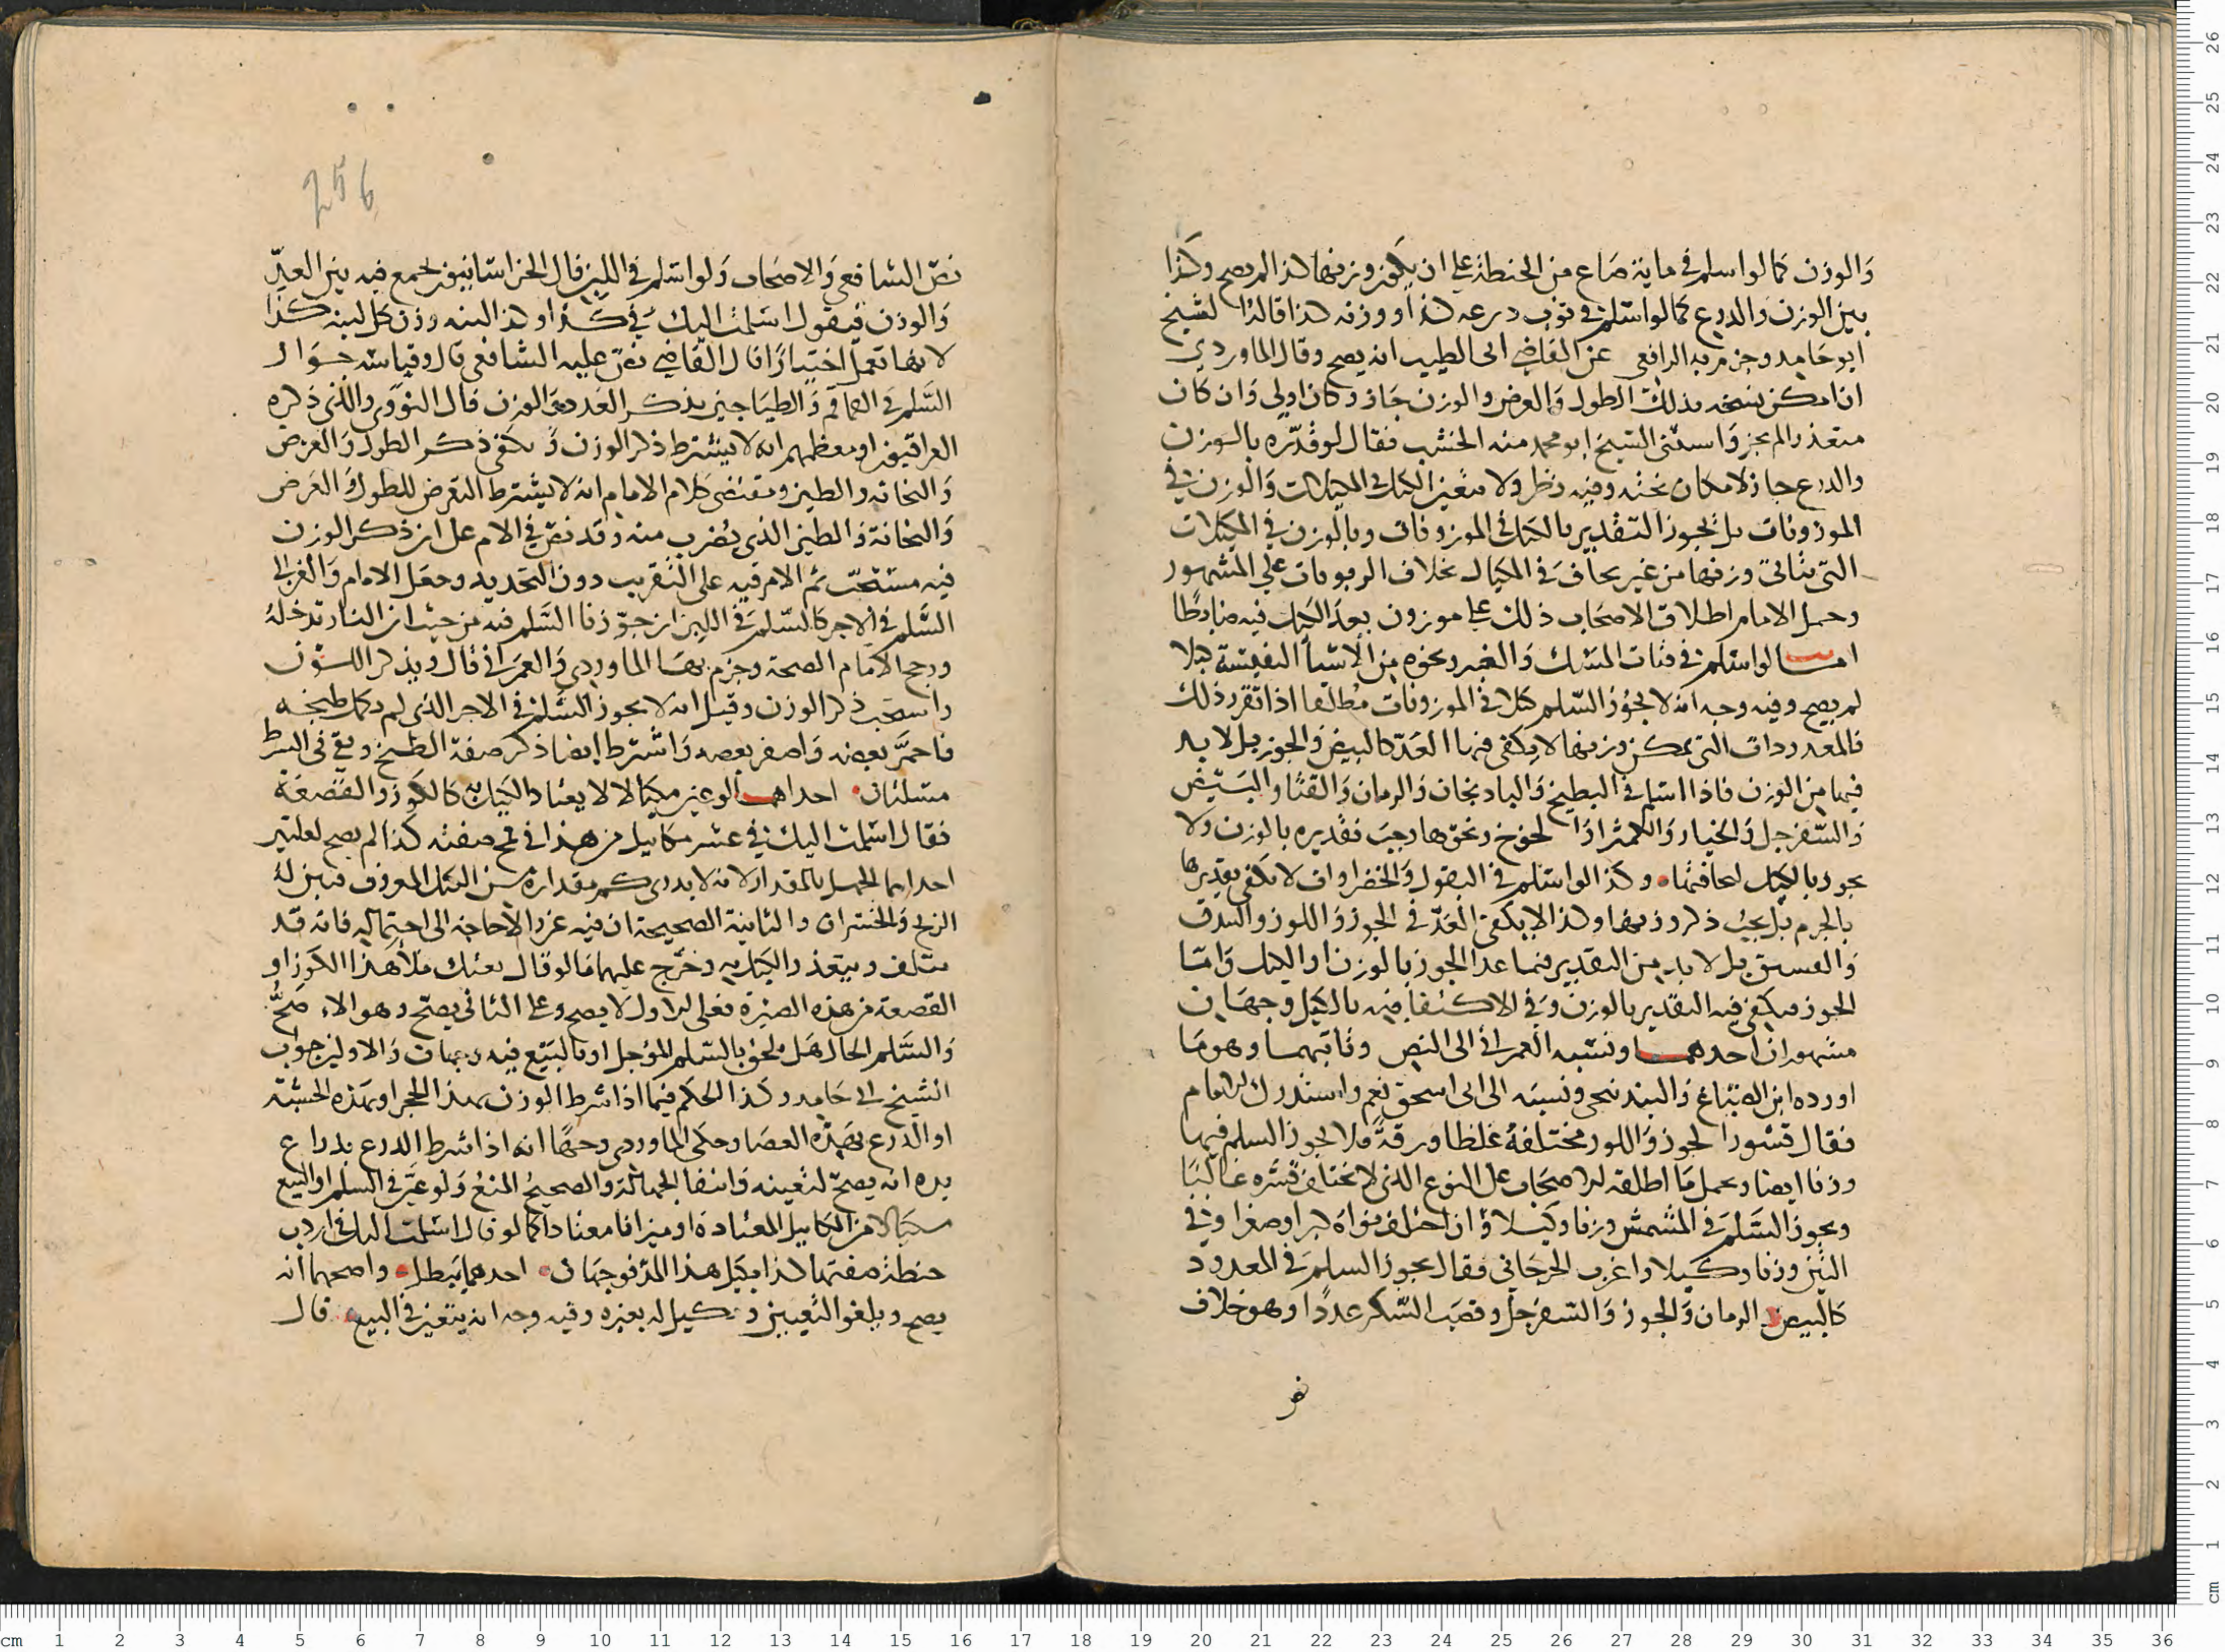 والوزن كما لو اسلم في ماية صاع من الحنطة على ان يكون وزنها كذا لم يصح وكذا
بين الوزن والدرع كما لو اسلم في ثوب درعه كذا ووزنه كذا قاله الشيخ
ابو حامد وجزم به الرافعي عن القاضي ابي الطيب انه يصح وقال الماوردي
ان امكن نسخه بذلك الطول والعرض والوزن جاز وكان اولى وان كان
متعذرا لم يجز واستثنى الشيخ ابو محمد منه الخشب فقال لو قدره بالوزن
والدرع جاز لامكان نحته وفيه نظر ولا يتعين الكيل في المكيلات والوزن في
الموزونات بل يجوز التقدير بالكيل في الموزونات وبالوزن في المكيلات
التي يتاتى وزنها من غير تجاف في المكيال بخلاف الربويات على المشهور
وحمل الامام اطلاق الاصحاب ذلك على موزون يعد الكيل فيه ضابطا
اما لو اسلم في فتات المسك والعنبر ونحوه من الاشيا النفيسة كيلا
لم يصح وفيه وجه انه لا يجوز السلم كيلا في الموزونات مطلقا اذا تقرر ذلك
فالمعدودات التي يمكن وزنها لا يكفي فيها العد كالبيض والجوز بل لا بد
فيها من الوزن فاذا اسلم في البطيخ والبادنجان والرمان والقثا والبيض
والسفرجل والخيار والكمثرا والخوخ ونحوها وجب تقديره بالوزن ولا
يجوز بالكيل لتجافيها وكذا لو اسلم في البقول والخضراوات لا يكفي تقديرها
بالحزم بل يجب ذكر وزنها وكذا لا يكفي العد في الجوز واللوز والبندق
والفستق بل لا بد من التقدير فيما عدا الجوز بالوزن او الكيل واما
الجوز فيكفي فيه التقدير بالوزن وفي الاكتفا فيه بالكيل وجهان
مشهوران احدهما ونسبه العمراني الى النص وثانيهما وهو ما
اورده ابن الصباغ والبندنيجي ونسبه الى ابي اسحق نعم واستدرك الامام
فقال قشور الجوز واللوز مختلفة غلظا ورقة فلا يجوز السلم فيها
وزنا ايضا ويحمل ما اطلقه الاصحاب على النوع الذي لا تختلف قشره غالبا
ويجوز السلم في المشمش وزنا وكيلا وان اختلف نواه كبرا وصغرا وفي
التين وزنا وكيلا واغرب الجرجاني فقال يجوز السلم في المعدود
كالبيض والرمان والجوز والسفرجل وقصب السكر عددا وهو خلاف
نص
256
نص الشافعي والاصحاب ولو اسلم في اللبن قال الخراسانيون يجمع فيه بين العد
والوزن فيقول اسلمت اليك في كذا وكذا لبنه وزن كل لبنه كذا
لانها تعمل اختيارا قال القاضي نص عليه الشافعي قال وقياسه جواز
السلم في القماقم والطياجين بذكر العدد مع الوزن قال النووي والذي ذكره
العراقيون او معظمهم انه لا يشترط ذكر الوزن ويكفي ذكر الطول والعرض
والثخانه والطين ومقتضى كلام الامام انه لا يشترط التعرض للطول والعرض
والثخانة والطين الذي يضرب منه وقد نص في الام على ان ذكر الوزن
فيه مستحب ثم الامر فيه على التقريب دون التحديد وجعل الامام والغزالي
السلم في الاجر كالسلم في اللبن ان جوزنا السلم فيه من حيث ان النار تدخله
ورجح الامام الصحة وجزم بها الماوردي والعمراني قال ويذكر اللون
واستحب ذكر الوزن وقيل انه لا يجوز السلم في الاجر الذي لم يكمل طبخه
فاحمر بعضه واصفر بعضه واشترط ايضا ذكر صفة الطبخ وبقي في الشرط
مسئلتان احداهما لو عين مكيالا لا يعتاد الكيل به كالكوز والقصعة
فقال اسلمت اليك في عشر مكاييل من هذا في قمح صفته كذا لم يصح لعلتين
احداهما الجهل بالمقدار لانه لا يدرى كم مقداره من الكيل المعروف فيبين له
الربح والخسران والثانية الصحيحة ان فيه غررا لا حاجة الى احتماله فانه قد
يتلف ويتعذر الكيل به وخرج عليهما ما لو قال بعتك ملأ هذا الكوز او
القصعة من هذه الصبرة فعلى الاول لا يصح وعلى الثاني يصح وهو الاصح
والسلم الحال هل يلحق بالسلم المؤجل او بالبيع فيه وجهان والاول من جواب
الشيخ ابي حامد وكذا الحكم فيما اذا شرط الوزن بهذا الحجر او بهذه الخشبة
او الدرع بهذه العصا وحكى الماوردي وجها انه اذا شرط الدرع بدراع
يده انه يصح لتعينه وانتفا الجهالة والصحيح المنع ولو عين في السلم او البيع
مكيالا من المكاييل المعتادة او ميزانا معتادا كما لو قال اسلمت اليك في اردب
حنطة صفتها كذا بكيل هذا المد فوجهان احدهما يبطل واصحهما انه
يصح ويلغو التعيين وكيل له بغيره وفيه وجه انه يتعين في البيع قال